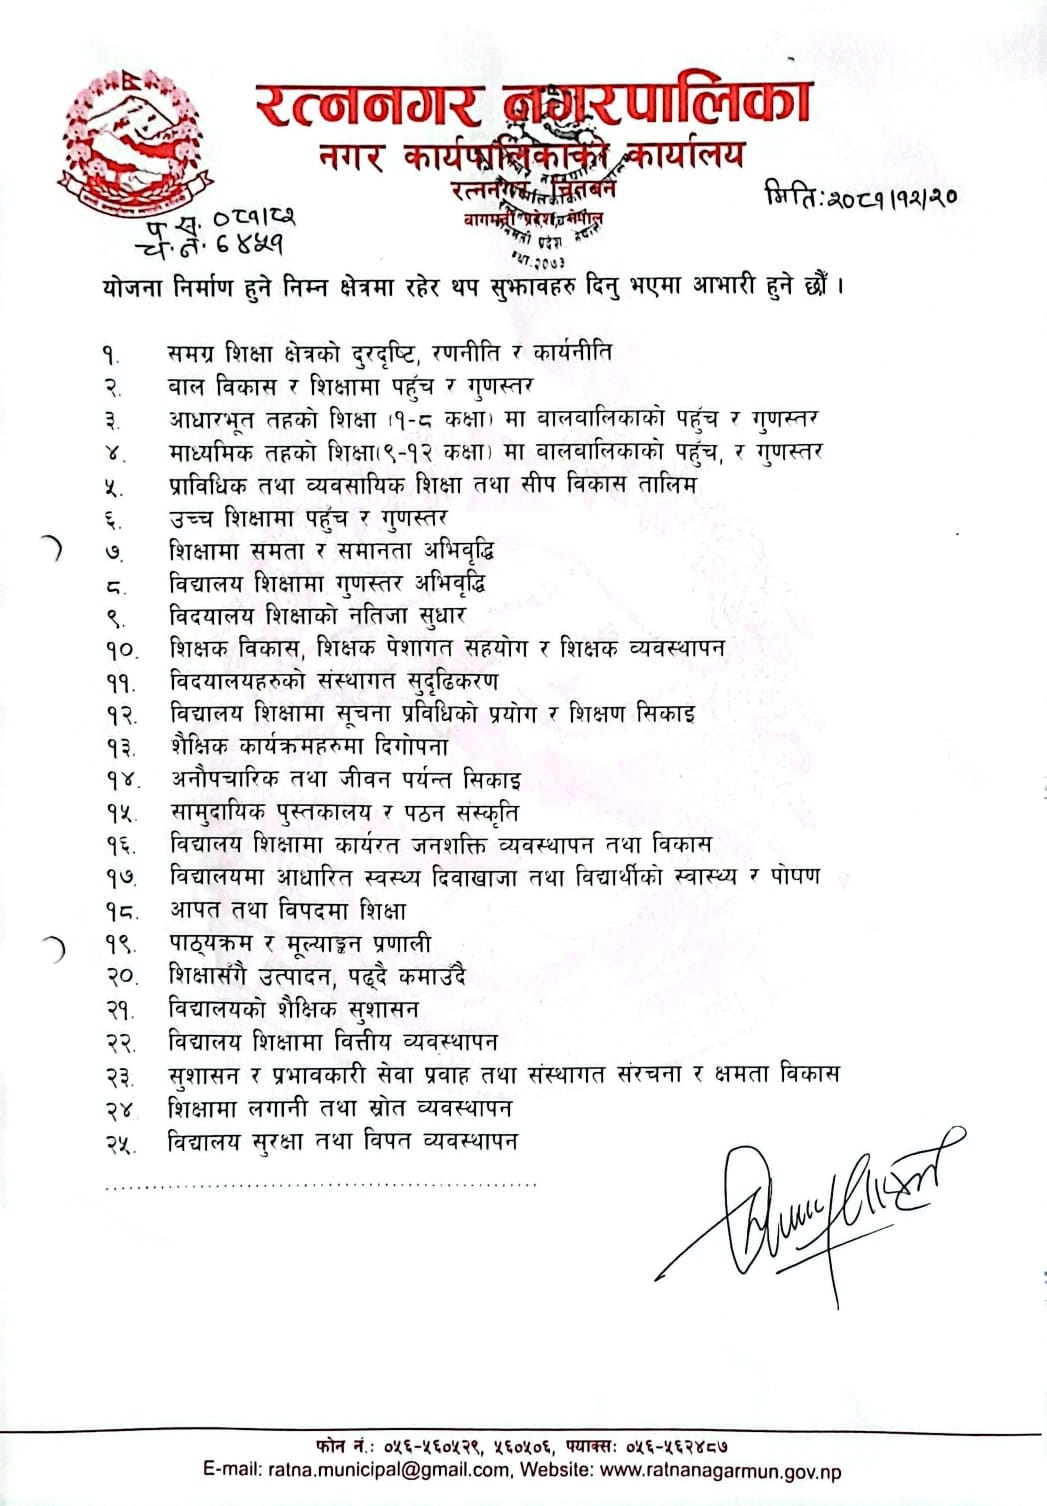 रत्ननगर नगरपालिका
नगर कार्यपालिकाको कार्यालय
रत्ननगर, चितवन
बागमती प्रदेश, नेपाल
मिति:२०८१/१२/२०
प. स. ०८१/८२
च. नं. ६४५१
योजना निर्माण हुने निम्न क्षेत्रमा रहेर थप सुझावहरु दिनु भएमा आभारी हुने छौँ ।
१. समग्र शिक्षा क्षेत्रको दुरदृष्टि, रणनीति र कार्यनीति
२. बाल विकास र शिक्षामा पहुँच र गुणस्तर
३. आधारभूत तहको शिक्षा (१-८ कक्षा) मा बालबालिकाको पहुँच र गुणस्तर
४. माध्यमिक तहको शिक्षा(९-१२ कक्षा) मा बालबालिकाको पहुँच, र गुणस्तर
५. प्राविधिक तथा व्यवसायिक शिक्षा तथा सीप विकास तालिम
६. उच्च शिक्षामा पहुँच र गुणस्तर
७. शिक्षामा समता र समानता अभिवृद्धि
८. विद्यालय शिक्षामा गुणस्तर अभिवृद्धि
९. विदयालय शिक्षाको नतिजा सुधार
१०. शिक्षक विकास, शिक्षक पेशागत सहयोग र शिक्षक व्यवस्थापन
११. विदयालयहरुको संस्थागत सुदृढिकरण
१२. विद्यालय शिक्षामा सूचना प्रविधिको प्रयोग र शिक्षण सिकाइ
१३. शैक्षिक कार्यक्रमहरुमा दिगोपना
१४. अनौपचारिक तथा जीवन पर्यन्त सिकाइ
१५. सामुदायिक पुस्तकालय र पठन संस्कृति
१६. विद्यालय शिक्षामा कार्यरत जनशक्ति व्यवस्थापन तथा विकास
१७. विद्यालयमा आधारित स्वस्थ्य दिवाखाजा तथा विद्यार्थीको स्वास्थ्य र पोषण
१८. आपत तथा विपदमा शिक्षा
१९. पाठ्यक्रम र मूल्याङ्कन प्रणाली
२०. शिक्षासँगै उत्पादन, पढ्दै कमाउँदै
२१. विद्यालयको शैक्षिक सुशासन
२२. विद्यालय शिक्षामा वित्तीय व्यवस्थापन
२३. सुशासन र प्रभावकारी सेवा प्रवाह तथा संस्थागत संरचना र क्षमता विकास
२४ शिक्षामा लगानी तथा स्रोत व्यवस्थापन
२५. विद्यालय सुरक्षा तथा विपत व्यवस्थापन
फोन नं.: ०५६-५६०५२९, ५६०५०६, फ्याक्स: ०५६-५६२४८७
E-mail: ratna.municipal@gmail.com, Website: www.ratnanagarmun.gov.np